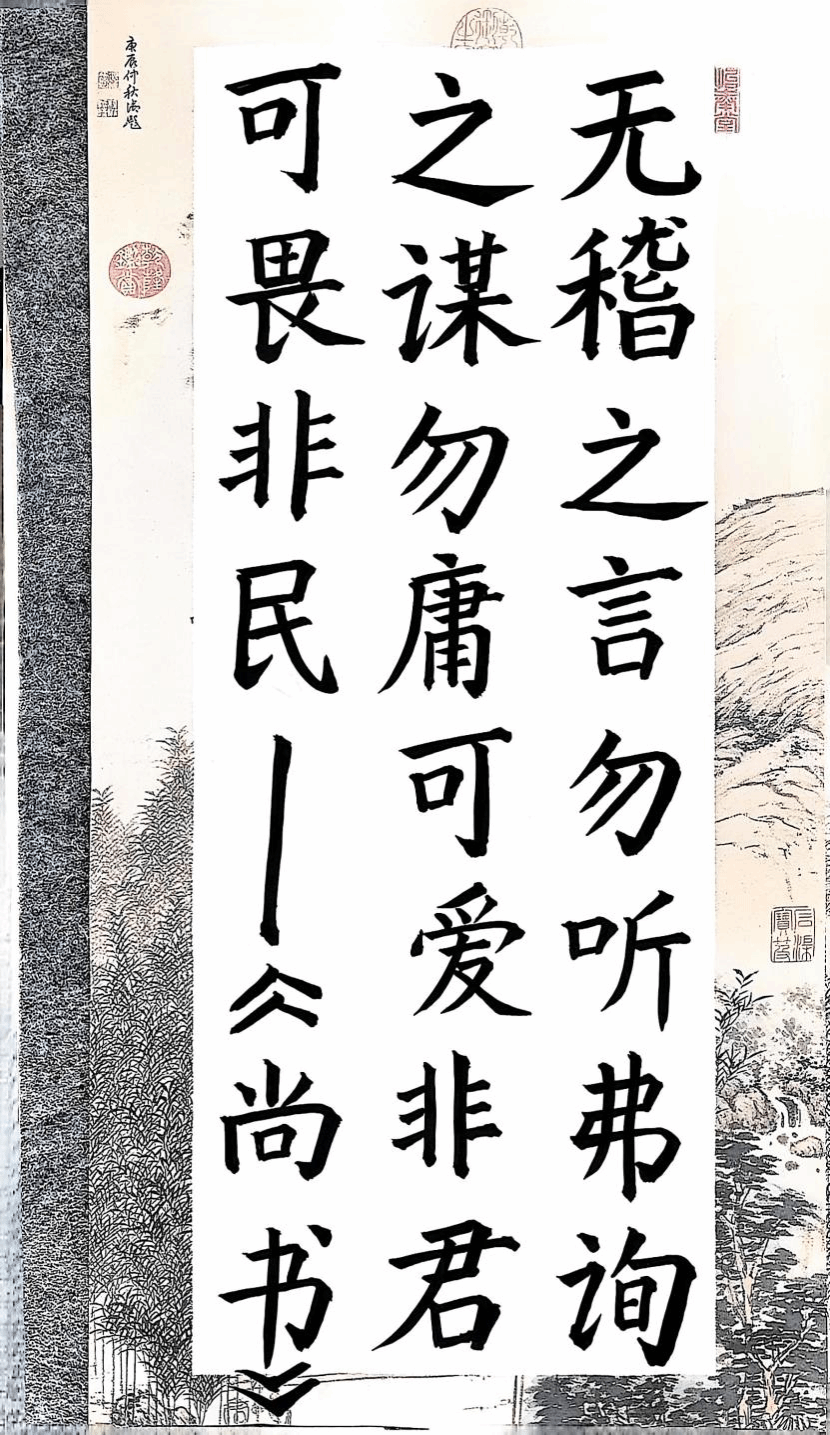 无稽之言勿听弗询
之谋勿庸可爱非君
可畏非民—《尚书》
庚辰仲秋御题